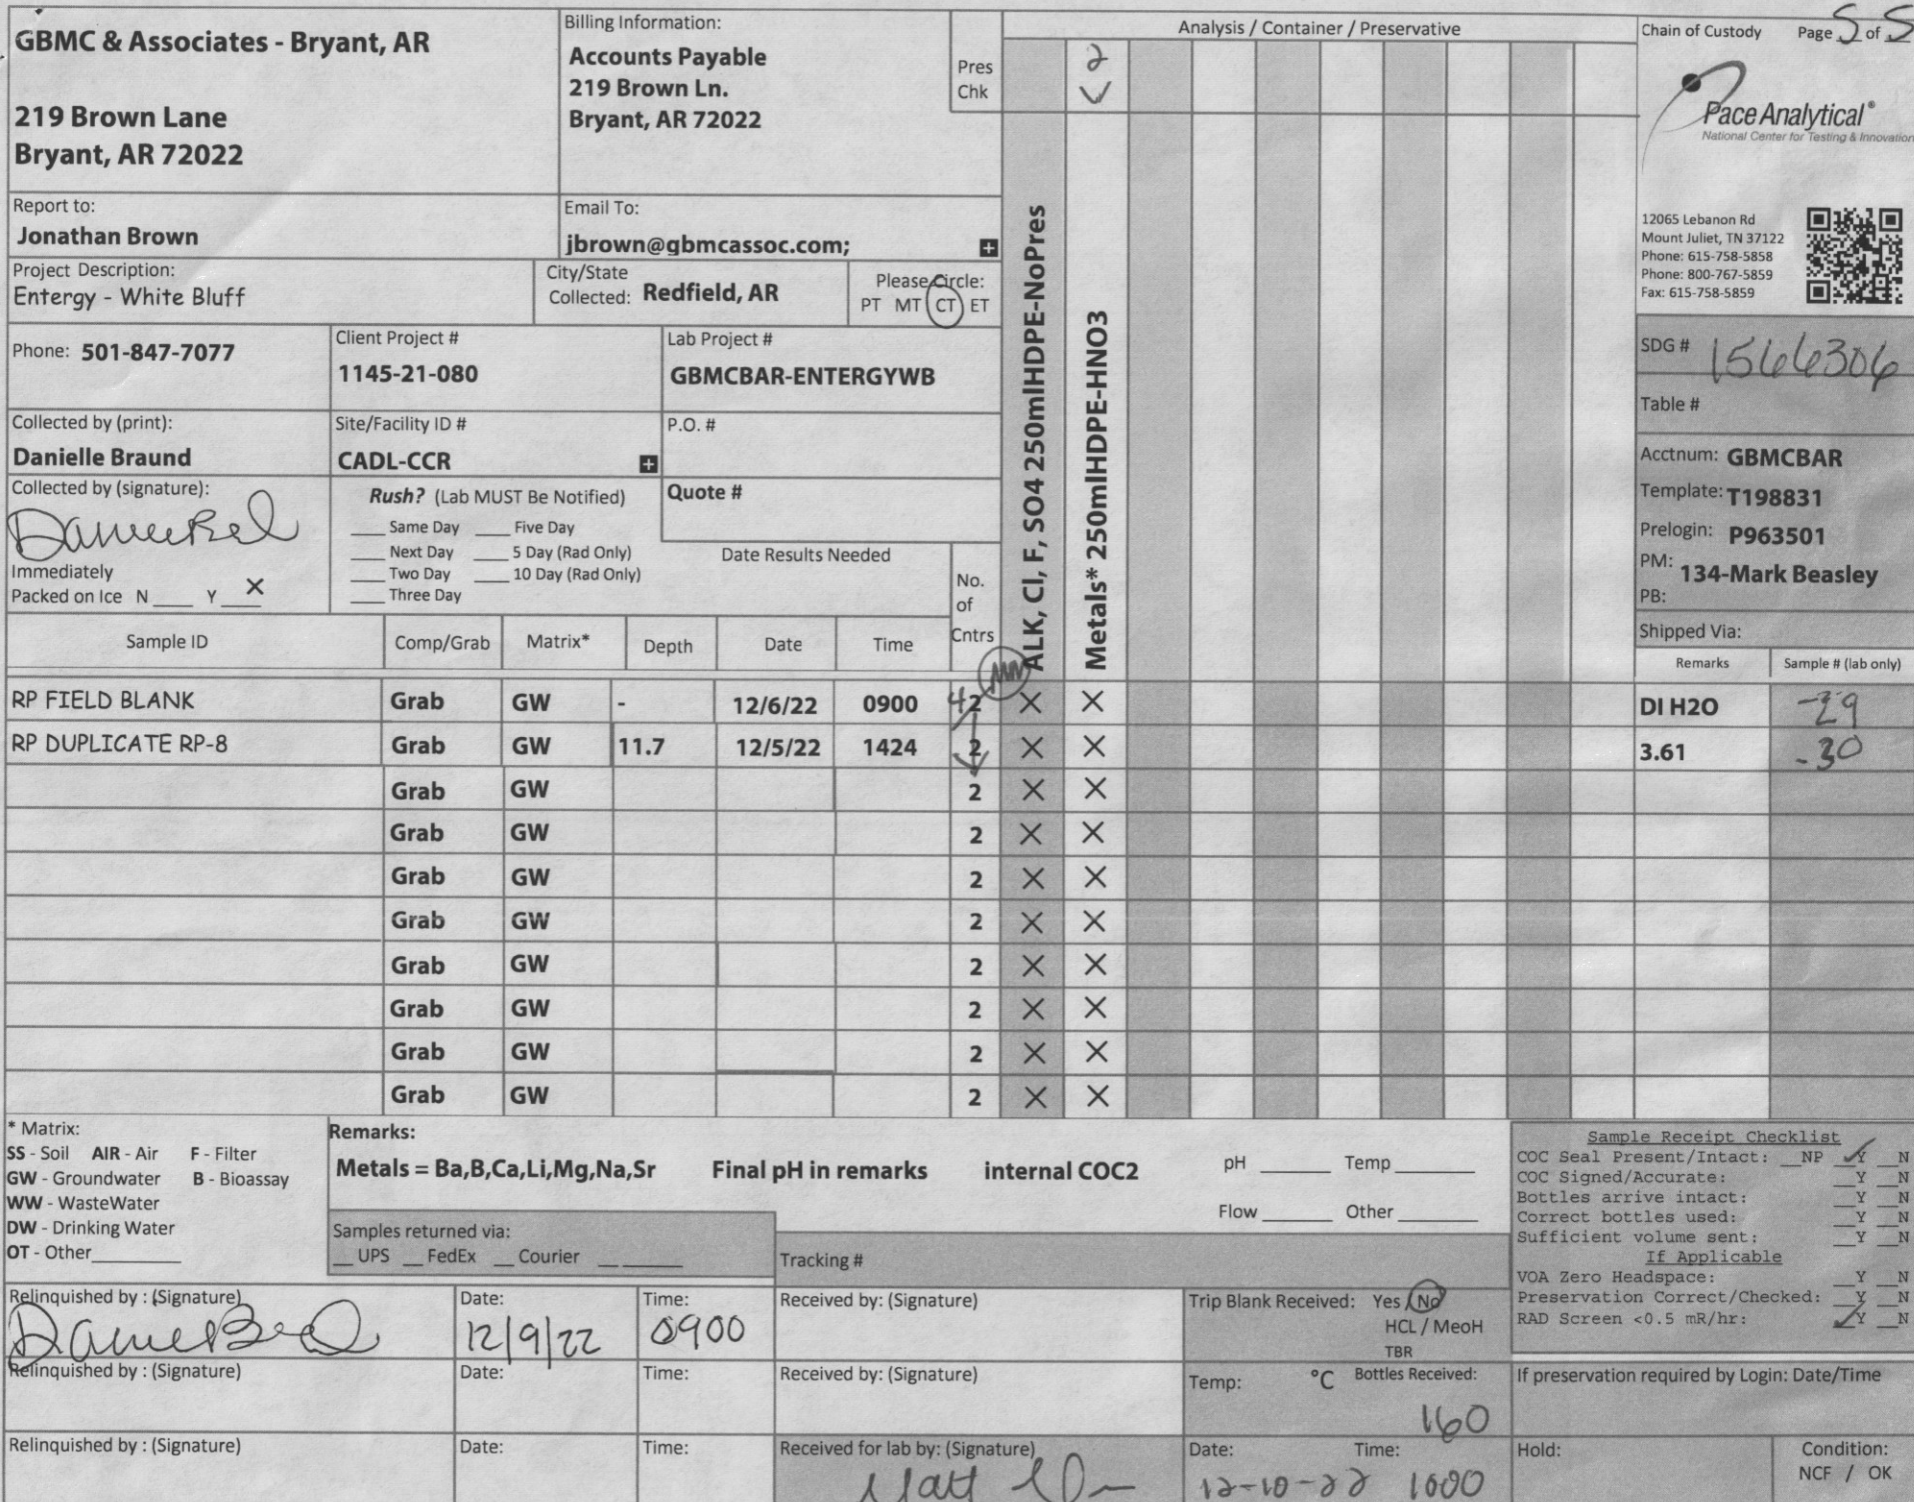 GBMC & Associates - Bryant, AR
219 Brown Lane
Bryant, AR 72022
Billing Information:
Accounts Payable
219 Brown Ln.
Bryant, AR 72022
Pres
Chk
Analysis / Container / Preservative
2
ALK, Cl, F, SO4 250mlHDPE-NoPres
Metals* 250mlHDPE-HNO3
Chain of Custody Page 5 of 5
Pace Analytical®
National Center for Testing & Innovation
12065 Lebanon Rd
Mount Juliet, TN 37122
Phone: 615-758-5858
Phone: 800-767-5859
Fax: 615-758-5859
Report to:
Jonathan Brown
Email To:
jbrown@gbmcassoc.com;
Project Description:
Entergy - White Bluff
City/State
Collected: Redfield, AR
Please Circle:
PT MT CT ET
Phone: 501-847-7077
Client Project #
1145-21-080
Lab Project #
GBMCBAR-ENTERGYWB
SDG # 1566306
Table #
Collected by (print):
Danielle Braund
Site/Facility ID #
CADL-CCR
P.O. #
Acctnum: GBMCBAR
Template: T198831
Prelogin: P963501
PM: 134-Mark Beasley
PB:
Shipped Via:
Collected by (signature):
Immediately
Packed on Ice N ____ Y ____ X
Rush? (Lab MUST Be Notified)
____ Same Day ____ Five Day
____ Next Day ____ 5 Day (Rad Only)
____ Two Day ____ 10 Day (Rad Only)
____ Three Day
Quote #
Date Results Needed
No.
of
Cntrs
Sample ID Comp/Grab Matrix* Depth Date Time Remarks Sample # (lab only)
RP FIELD BLANK Grab GW - 12/6/22 0900 4 2 X X DI H2O -29
RP DUPLICATE RP-8 Grab GW 11.7 12/5/22 1424 2 X X 3.61 -30
Grab GW 2 X X
Grab GW 2 X X
Grab GW 2 X X
Grab GW 2 X X
Grab GW 2 X X
Grab GW 2 X X
Grab GW 2 X X
Grab GW 2 X X
* Matrix:
SS - Soil AIR - Air F - Filter
GW - Groundwater B - Bioassay
WW - WasteWater
DW - Drinking Water
OT - Other
Remarks:
Metals = Ba,B,Ca,Li,Mg,Na,Sr Final pH in remarks internal COC2
pH ____ Temp ____
Flow ____ Other ____
Samples returned via:
__ UPS __ FedEx __ Courier __ ____
Tracking #
Sample Receipt Checklist
COC Seal Present/Intact: __NP __Y __N
COC Signed/Accurate: __Y __N
Bottles arrive intact: __Y __N
Correct bottles used: __Y __N
Sufficient volume sent: __Y __N
If Applicable
VOA Zero Headspace: __Y __N
Preservation Correct/Checked: __Y __N
RAD Screen <0.5 mR/hr: __Y __N
Relinquished by : (Signature)
Date: 12/9/22
Time: 0900
Received by: (Signature)
Trip Blank Received: Yes / No
HCL / MeoH
TBR
Relinquished by : (Signature)
Date:
Time:
Received by: (Signature)
Temp: °C
Bottles Received:
160
If preservation required by Login: Date/Time
Relinquished by : (Signature)
Date:
Time:
Received for lab by: (Signature)
Matt
Date: 12-10-22
Time: 1000
Hold:
Condition:
NCF / OK